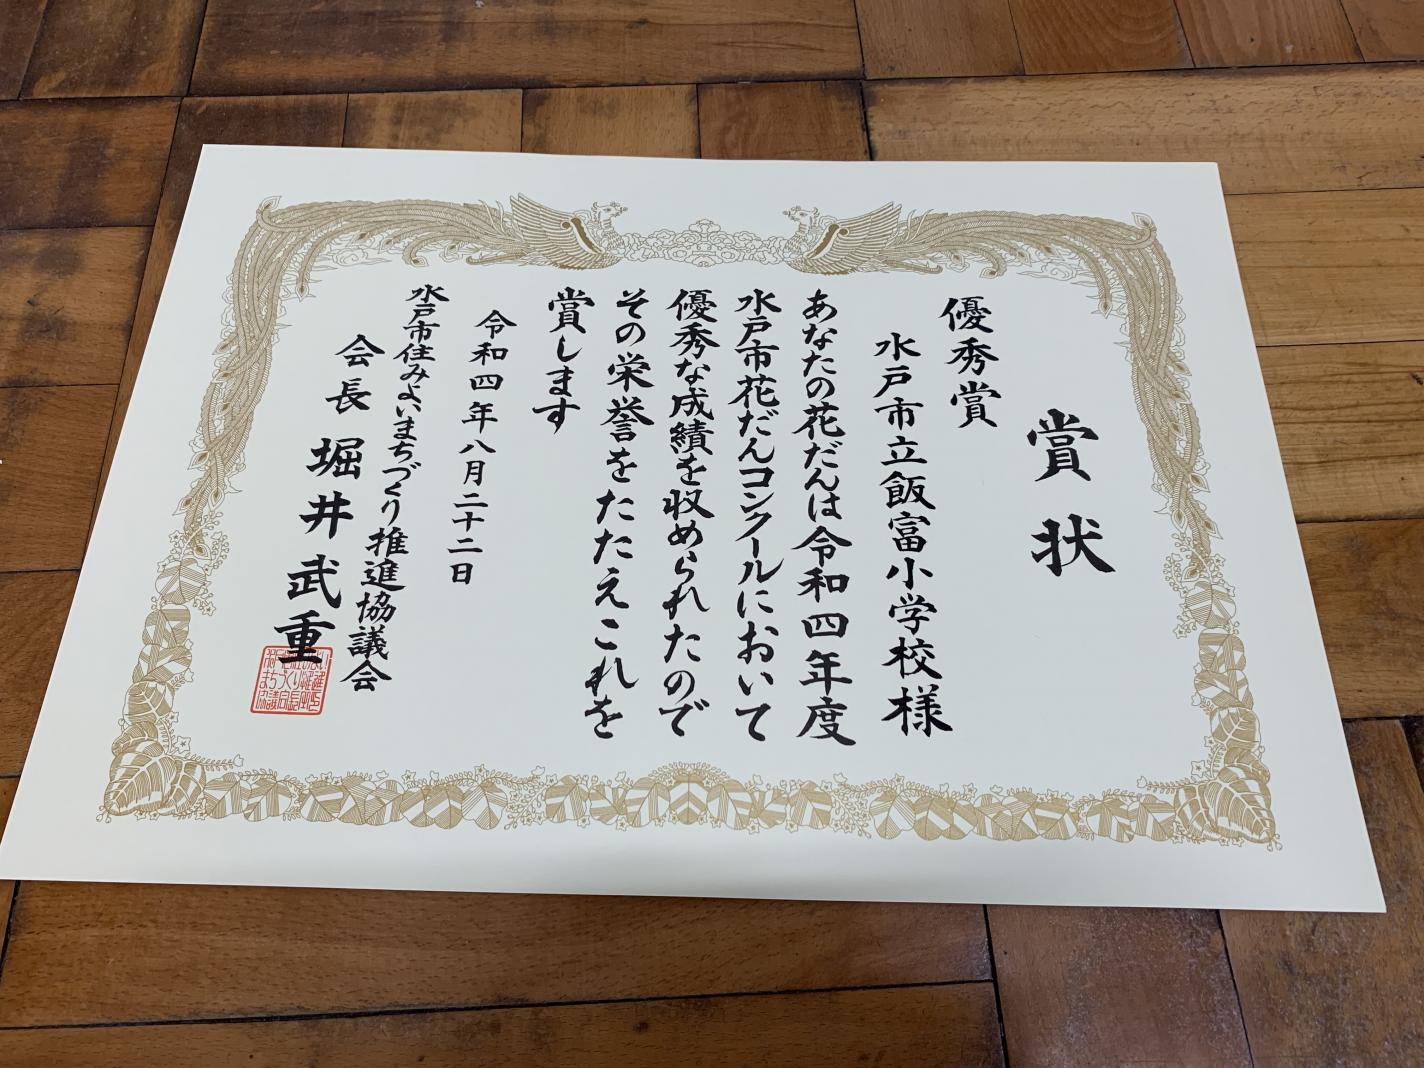 賞状
優秀賞
水戸市立飯富小学校様
あなたの花だんは令和四年度
水戸市花だんコンクールにおいて
優秀な成績を収められたので
その栄誉をたたえこれを
賞します
令和四年八月二十二日
水戸市住みよいまちづくり推進協議会
会長 堀井武重